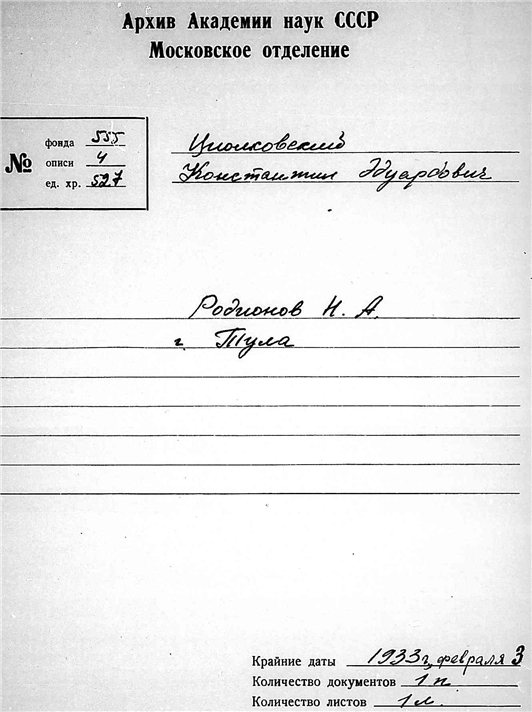 Архив Академии наук СССР
Московское отделение
№
фонда 555
описи 4
ед. хр. 527
Циолковский
Константин Эдуардович
Родионов Н. А.
г. Тула
Крайние даты 1933 г, февраля 3
Количество документов 1 п
Количество листов 1 л.